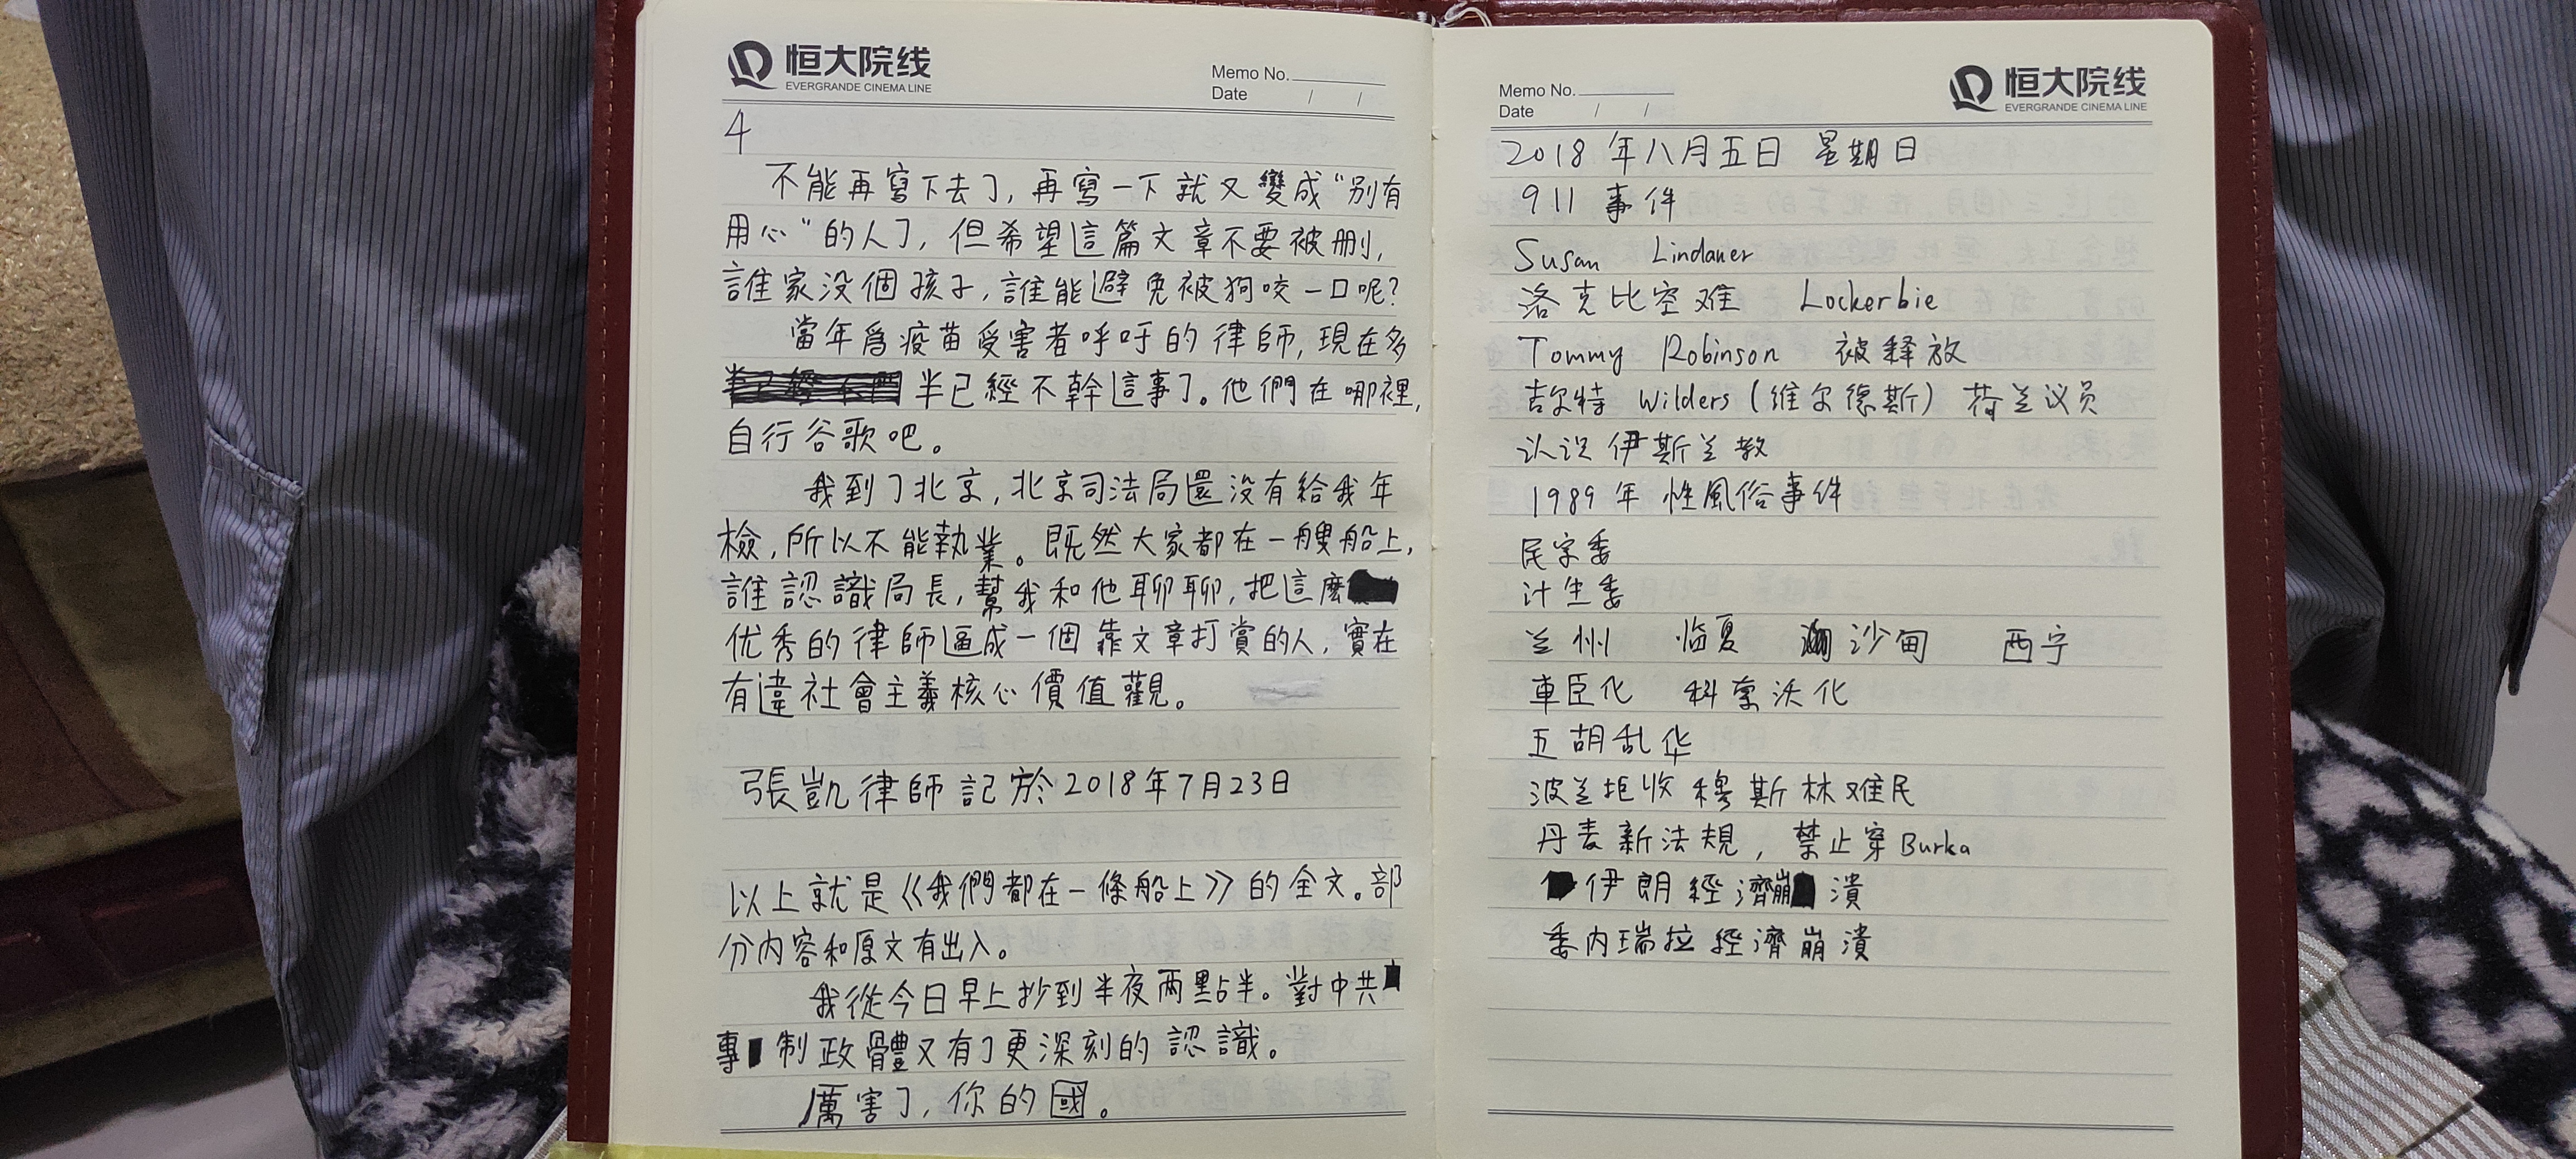 恒大院线
EVERGRANDE CINEMA LINE
Memo No.
Date / /
4
不能再寫下去了,再寫一下就又變成“別有
用心“的人了,但希望這篇文章不要被刪,
誰家没個孩子,誰能避免被狗咬一口呢?
當年爲疫苗受害者呼吁的律師,現在多
半已經不幹這事了。他們在哪裡,
自行谷歌吧。
我到了北京,北京司法局還没有給我年
檢,所以不能執業。既然大家都在一艘船上,
誰認識局長,幫我和他聊聊,把這麽
优秀的律師逼成一個靠文章打賞的人,實在
有違社會主義核心價值觀。
張凱律師記於2018年7月23日
以上就是《我們都在一條船上》的全文。部
分内容和原文有出入。
我從今日早上抄到半夜兩點半。對中共
專制政體又有了更深刻的認識。
厲害了,你的國。
Memo No.
Date / /
恒大院线
EVERGRANDE CINEMA LINE
2018年八月五日 星期日
911 事件
Susan Lindauer
洛克比空难 Lockerbie
Tommy Robinson 被释放
吉尔特 Wilders(维尔德斯)荷兰议员
认识伊斯兰教
1989年 性風俗事件
民宗委
计生委
兰州 临夏 沙甸 西宁
車臣化 科索沃化
五胡乱华
波兰拒收穆斯林难民
丹麦新法規,禁止穿Burka
伊朗經濟崩潰
委内瑞拉經濟崩潰